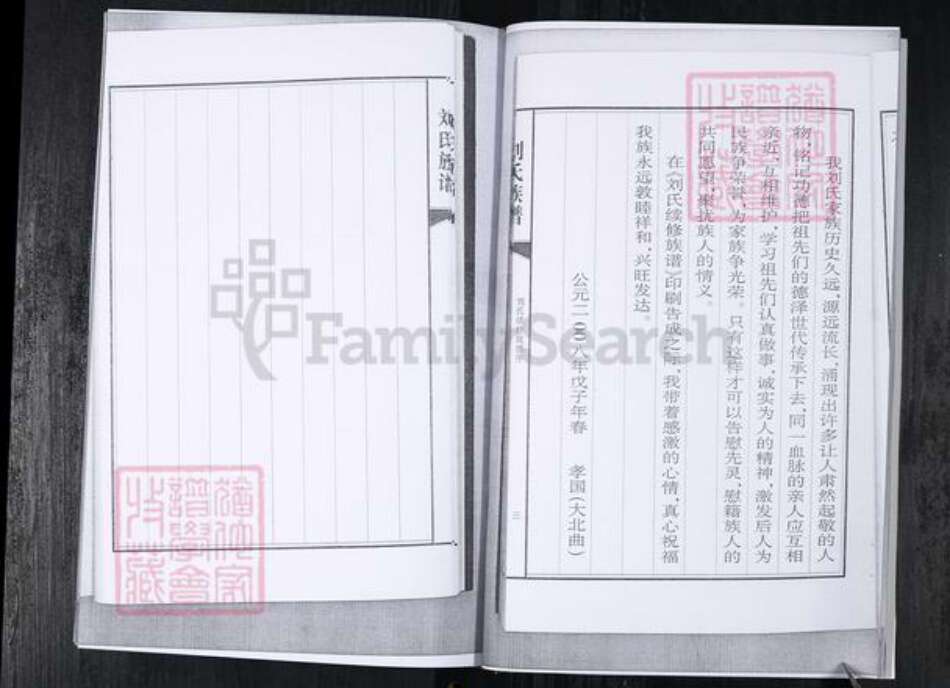 我刘氏家族历史久远，源远流长，涌现出许多让人肃然起敬的人
物，铭记功德把祖先们的德泽世代传承下去，同一血脉的亲人应互相
亲近、互相维护，学习祖先们认真做事，诚实为人的精神，激发后人为
民族争荣誉，为家族争光荣。只有这样才可以告慰先灵、慰籍族人的
共同愿望，聚扰族人的情义。
在《刘氏续修族谱》印刷告成之际，我带着感激的心情，真心祝福
我族永远敦睦祥和，兴旺发达。
公元二〇〇八年戊子年春 孝国(大北曲)
刘氏族谱
三
刘氏族谱
FamilySearch